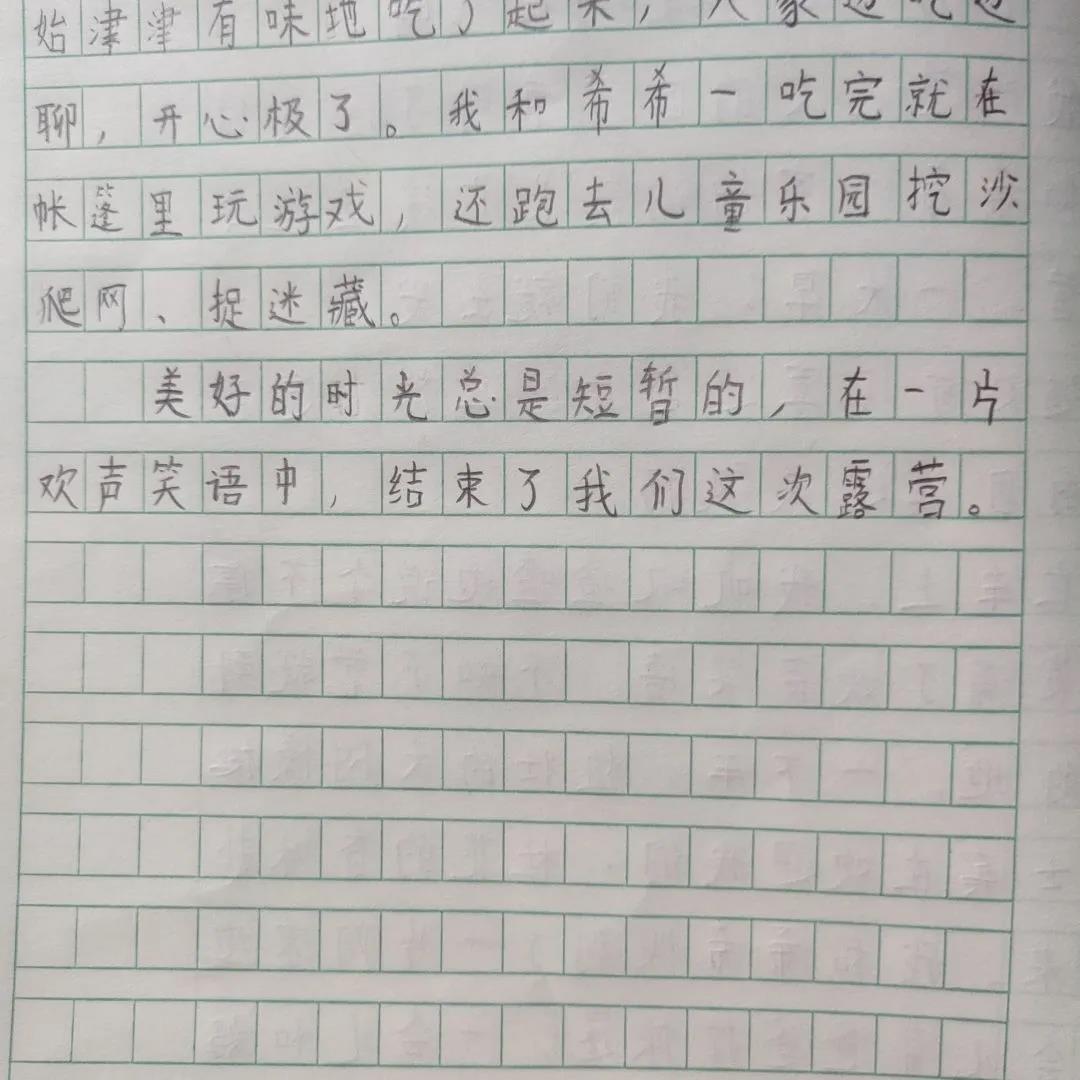 始津津有味地吃了起来，大家边吃边
聊，开心极了。我和希希一吃完就在
帐篷里玩游戏，还跑去儿童乐园挖沙
爬网、捉迷藏。
美好的时光总是短暂的，在一片
欢声笑语中，结束了我们这次露营。